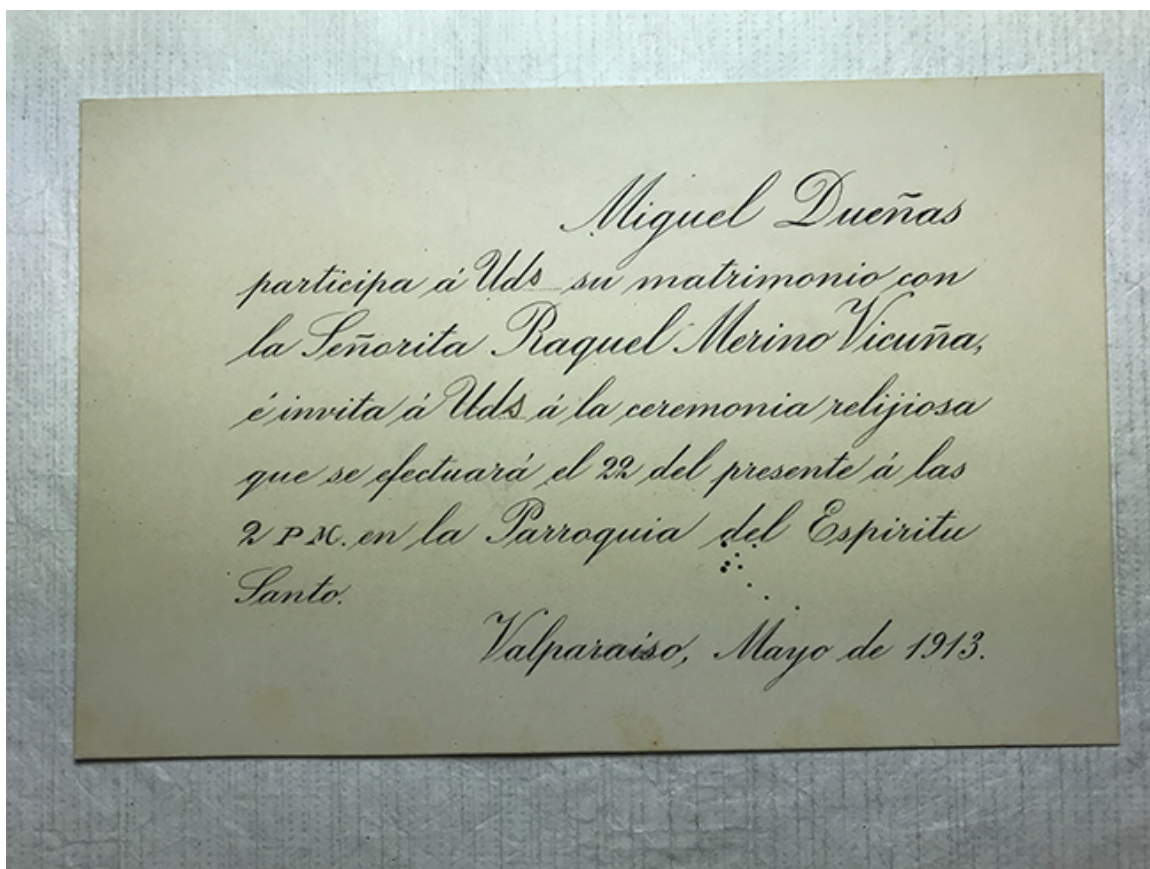 Miguel Dueñas
participa á Uds su matrimonio con
la Señorita Raquel Merino Vicuña,
é invita á Uds á la ceremonia relijiosa
que se efectuará el 22 del presente á las
2 P M. en la Parroquia del Espiritu
Santo.
Valparaiso, Mayo de 1913.